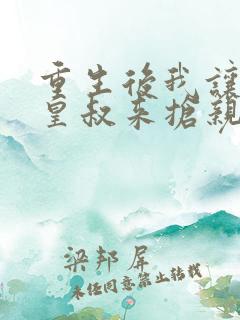 重生後我讓
皇叔来搶親
梁邦犀
未经同意禁止转载